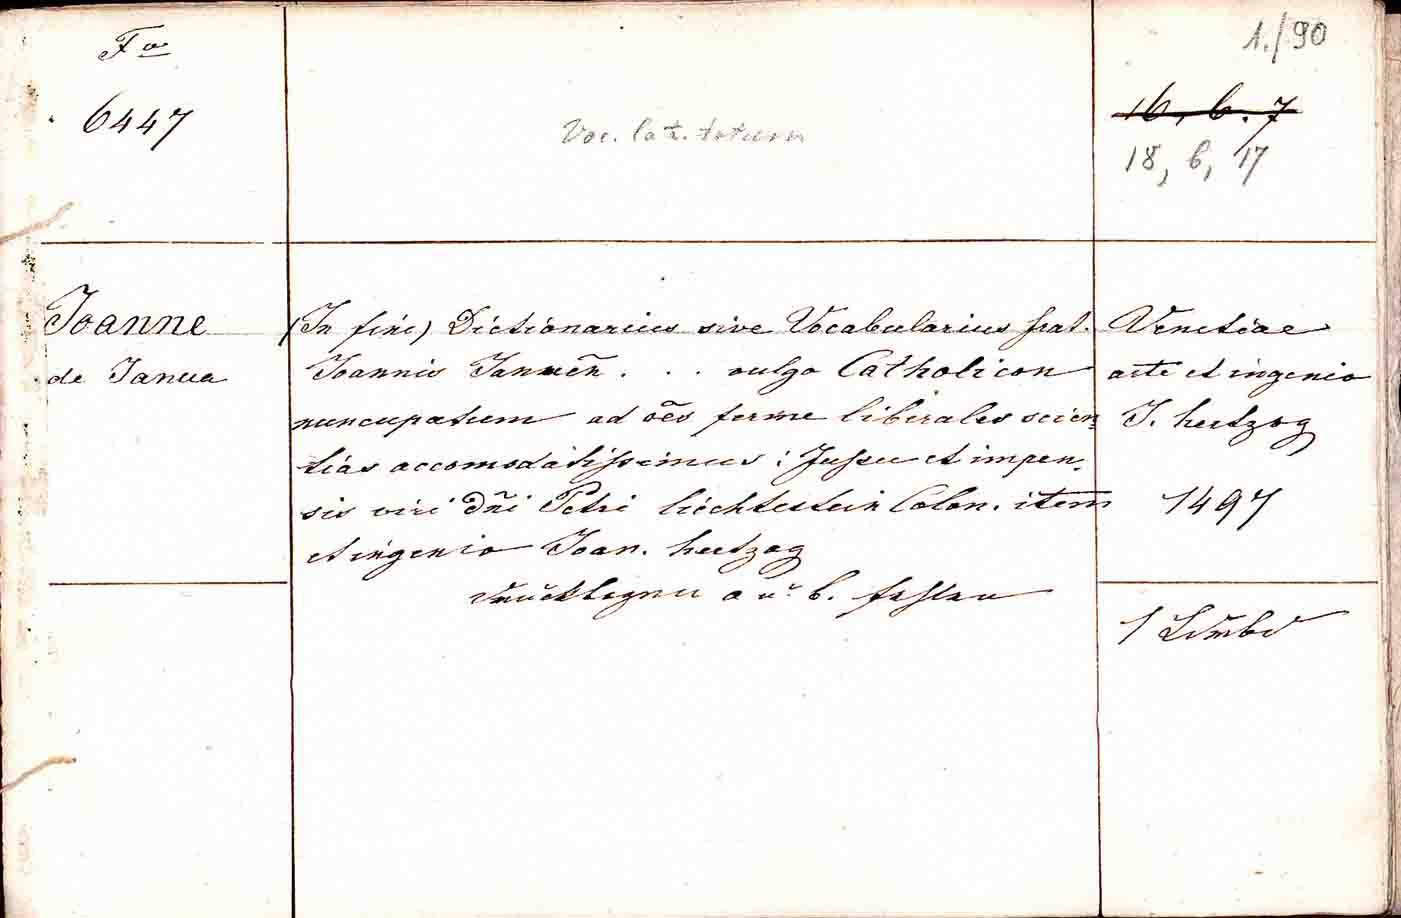 Fo
6447
Voc. lat. totum
1./90
16, b. 7
18, b, 17
Joanne
de Janua
(In fine) Dictionarius sive Vocabularius frat.
Joannis Januēn . . . vulgo Catholicon
nuncupatum ad oēs ferme liberales scien-
tias accomodatissimus : Jussu et impen-
sis viri dn̄i Petri liechtestein Colon. item
et ingenio Joan. hertzog
a u. b. fehlen
Venetiae
arte et ingenio
J. hertzog
1497
1